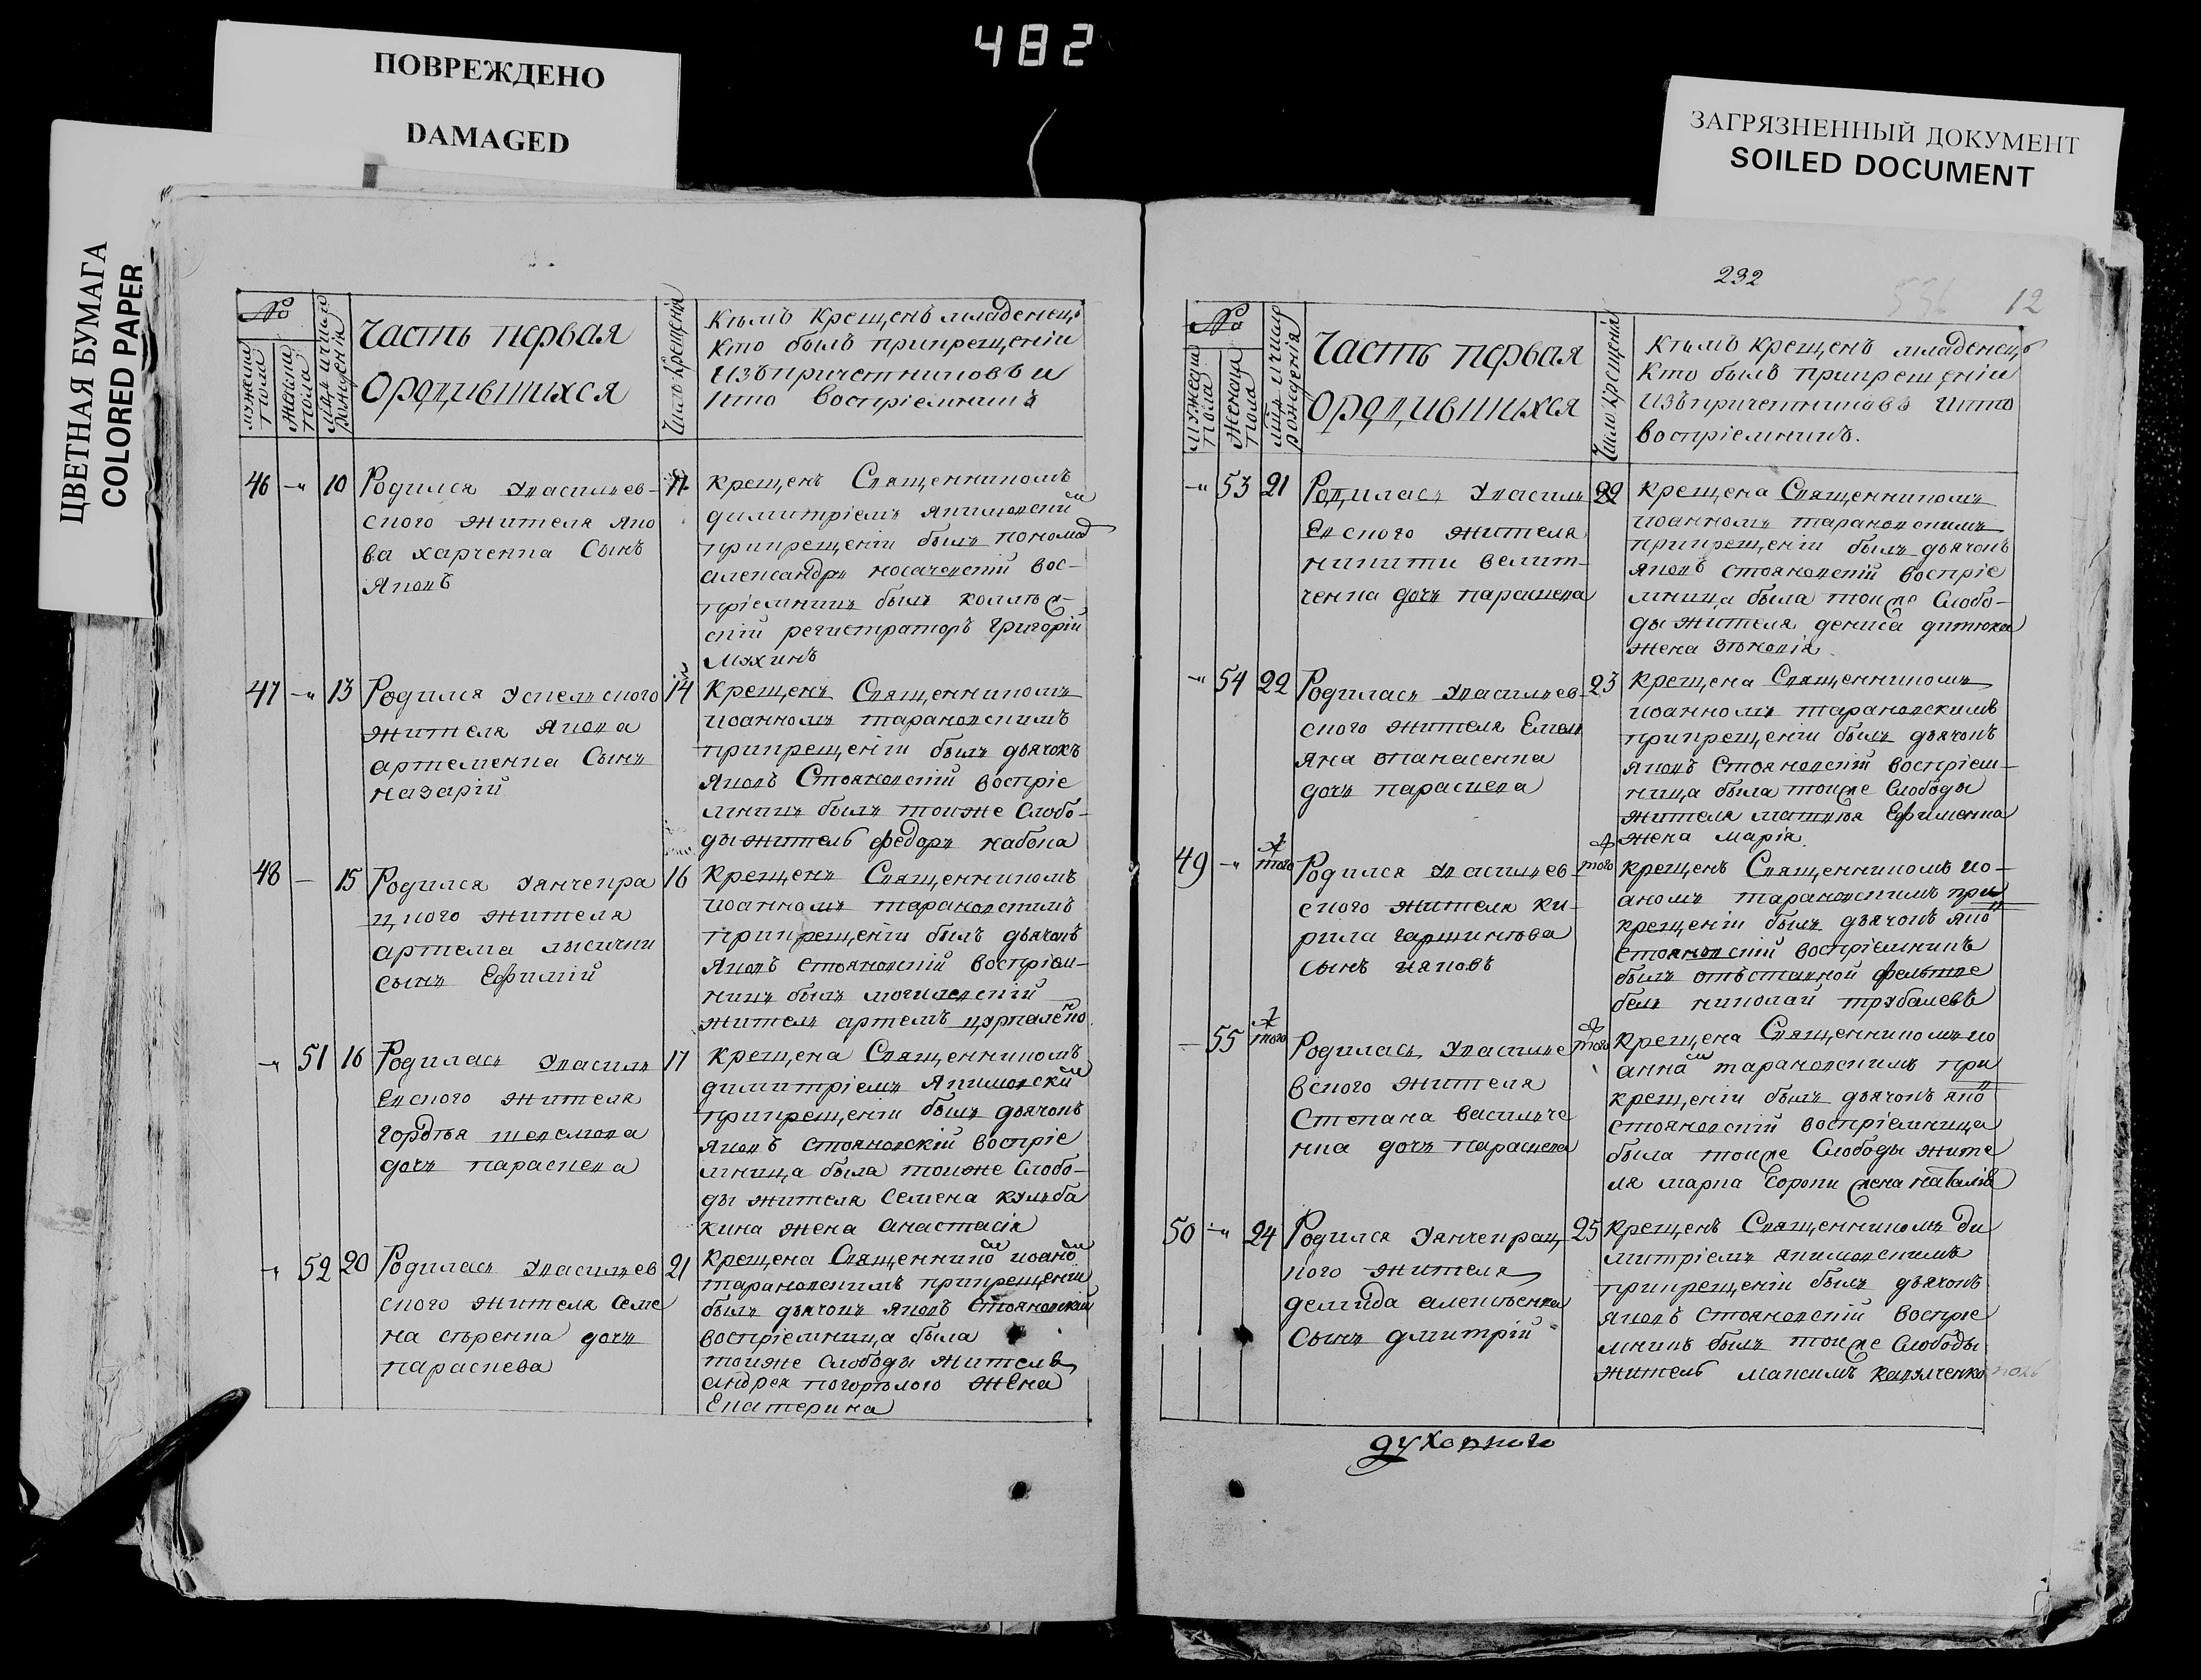 482
ПОВРЕЖДЕНО
DAMAGED
ЗАГРЯЗНЕННЫЙ ДОКУМЕНТ
SOILED DOCUMENT
ЦВЕТНАЯ БУМАГА
COLORED PAPER
№
мужеска пола
женска пола
рожденія
Часть первая
Ородившихся
Число крещенія
Кѣмъ крещенъ младенецъ
кто былъ прикрещеніи
изъпричетниковъ и
кто воспріемникъ
46 10 Родился Увасильев-
ского жителя Яко
ва харченка Сынъ
Яковъ
крещенъ Священникомъ
димитріемъ Якимовскимъ
прикрещеніи былъ понома
александръ носачевскій вос-
пріемникъ былъ коллеж-
скій регистраторъ григорій
мухинъ
47 13 Родился
жителя Якова
артеменка Сынъ
назарій
14 Крещенъ Священникомъ
иоанномъ тарановскимъ
прикрещеніи былъ дьячокъ
Яковъ Стояновскій воспріе
мникъ былъ тоиже Слобо-
ды житель федоръ набока
48 15 Родился Уянчекра
цкого жителя
артема лысички
сынъ Ефимій
16 Крещенъ Священникомъ
иоанномъ тарановскимъ
прикрещеніи былъ дьячокъ
Яковъ стояновскій воспріем-
никъ былъ могилевскій
житель артемъ
51 16 Родилась Увасиль
евского жителя
гордѣя шевелюва
дочь параскева
17 крещена Священникомъ
димитріемъ Якимовскимъ
прикрещеніи былъ дьячокъ
яковъ стояновскій воспріе
мница была тоиже Слобо-
ды жителя Семена кульба
кина жена анастасія
52 20 Родилась Увасильев
ского жителя Семе
на сѣренка дочь
параскева
21 крещена Священнико иоано
тарановскимъ прикрещеніи
былъ дьячокъ яковъ Стояновскій
воспріемница была
тоиже слободы жителя
андрея погорѣлого жена
Екатерина
232
12
№
мужеска пола
женска пола
рожденія
Часть первая
Ородившихся
Число крещенія
Кѣмъ крещенъ младенецъ
кто былъ прикрещеніи
изъпричетниковъ икто
воспріемникъ.
53 21 Родилась Увасиль
евского жителя
никиты велит-
ченка дочь параскева
22 крещена Священникомъ
иоанномъ тарановскимъ
прикрещеніи былъ дьячокъ
яковъ стояновскій воспріе
мница была тоиже Слобо-
ды жителя дениса дитюка
жена
54 22 Родилась Увасильев-
ского жителя Емел
яна опанасенка
дочь параскева
23 крещена Священникомъ
иоанномъ тарановскимъ
прикрещеніи былъ дьячокъ
яковъ Стояновскій воспріем-
ница была тоиже Слободы
жителя матвѣя Ефименка
жена марія
49 того Родился Увасильев-
ского жителя ки-
рила
сынъ иаковъ
того крещенъ Священникомъ ио-
аномъ тарановскимъ при
крещеніи былъ дьячокъ яко
стояновскій воспріемникъ
былъ отъставной фельтве
бель николай трубачевъ
55 того Родилась Увасилье
вского жителя
Степана василече
нка дочь параскева
того крещена Священникомъ ио
анномъ тарановскимъ при
крещеніи былъ дьячокъ яко
стояновскій воспріемница
была тоиже Слободы жите
ля марка Сороки жена наталія
50 24 Родился Уянчекрац
кого жителя
демида алексѣенка
Сынъ дмитрій
25 крещенъ Священникомъ ди
митріемъ якимовскимъ
прикрещеніи былъ дьячокъ
яковъ стояновскій воспріе
мникъ былъ тоиже Слободы
житель максимъ
духовного